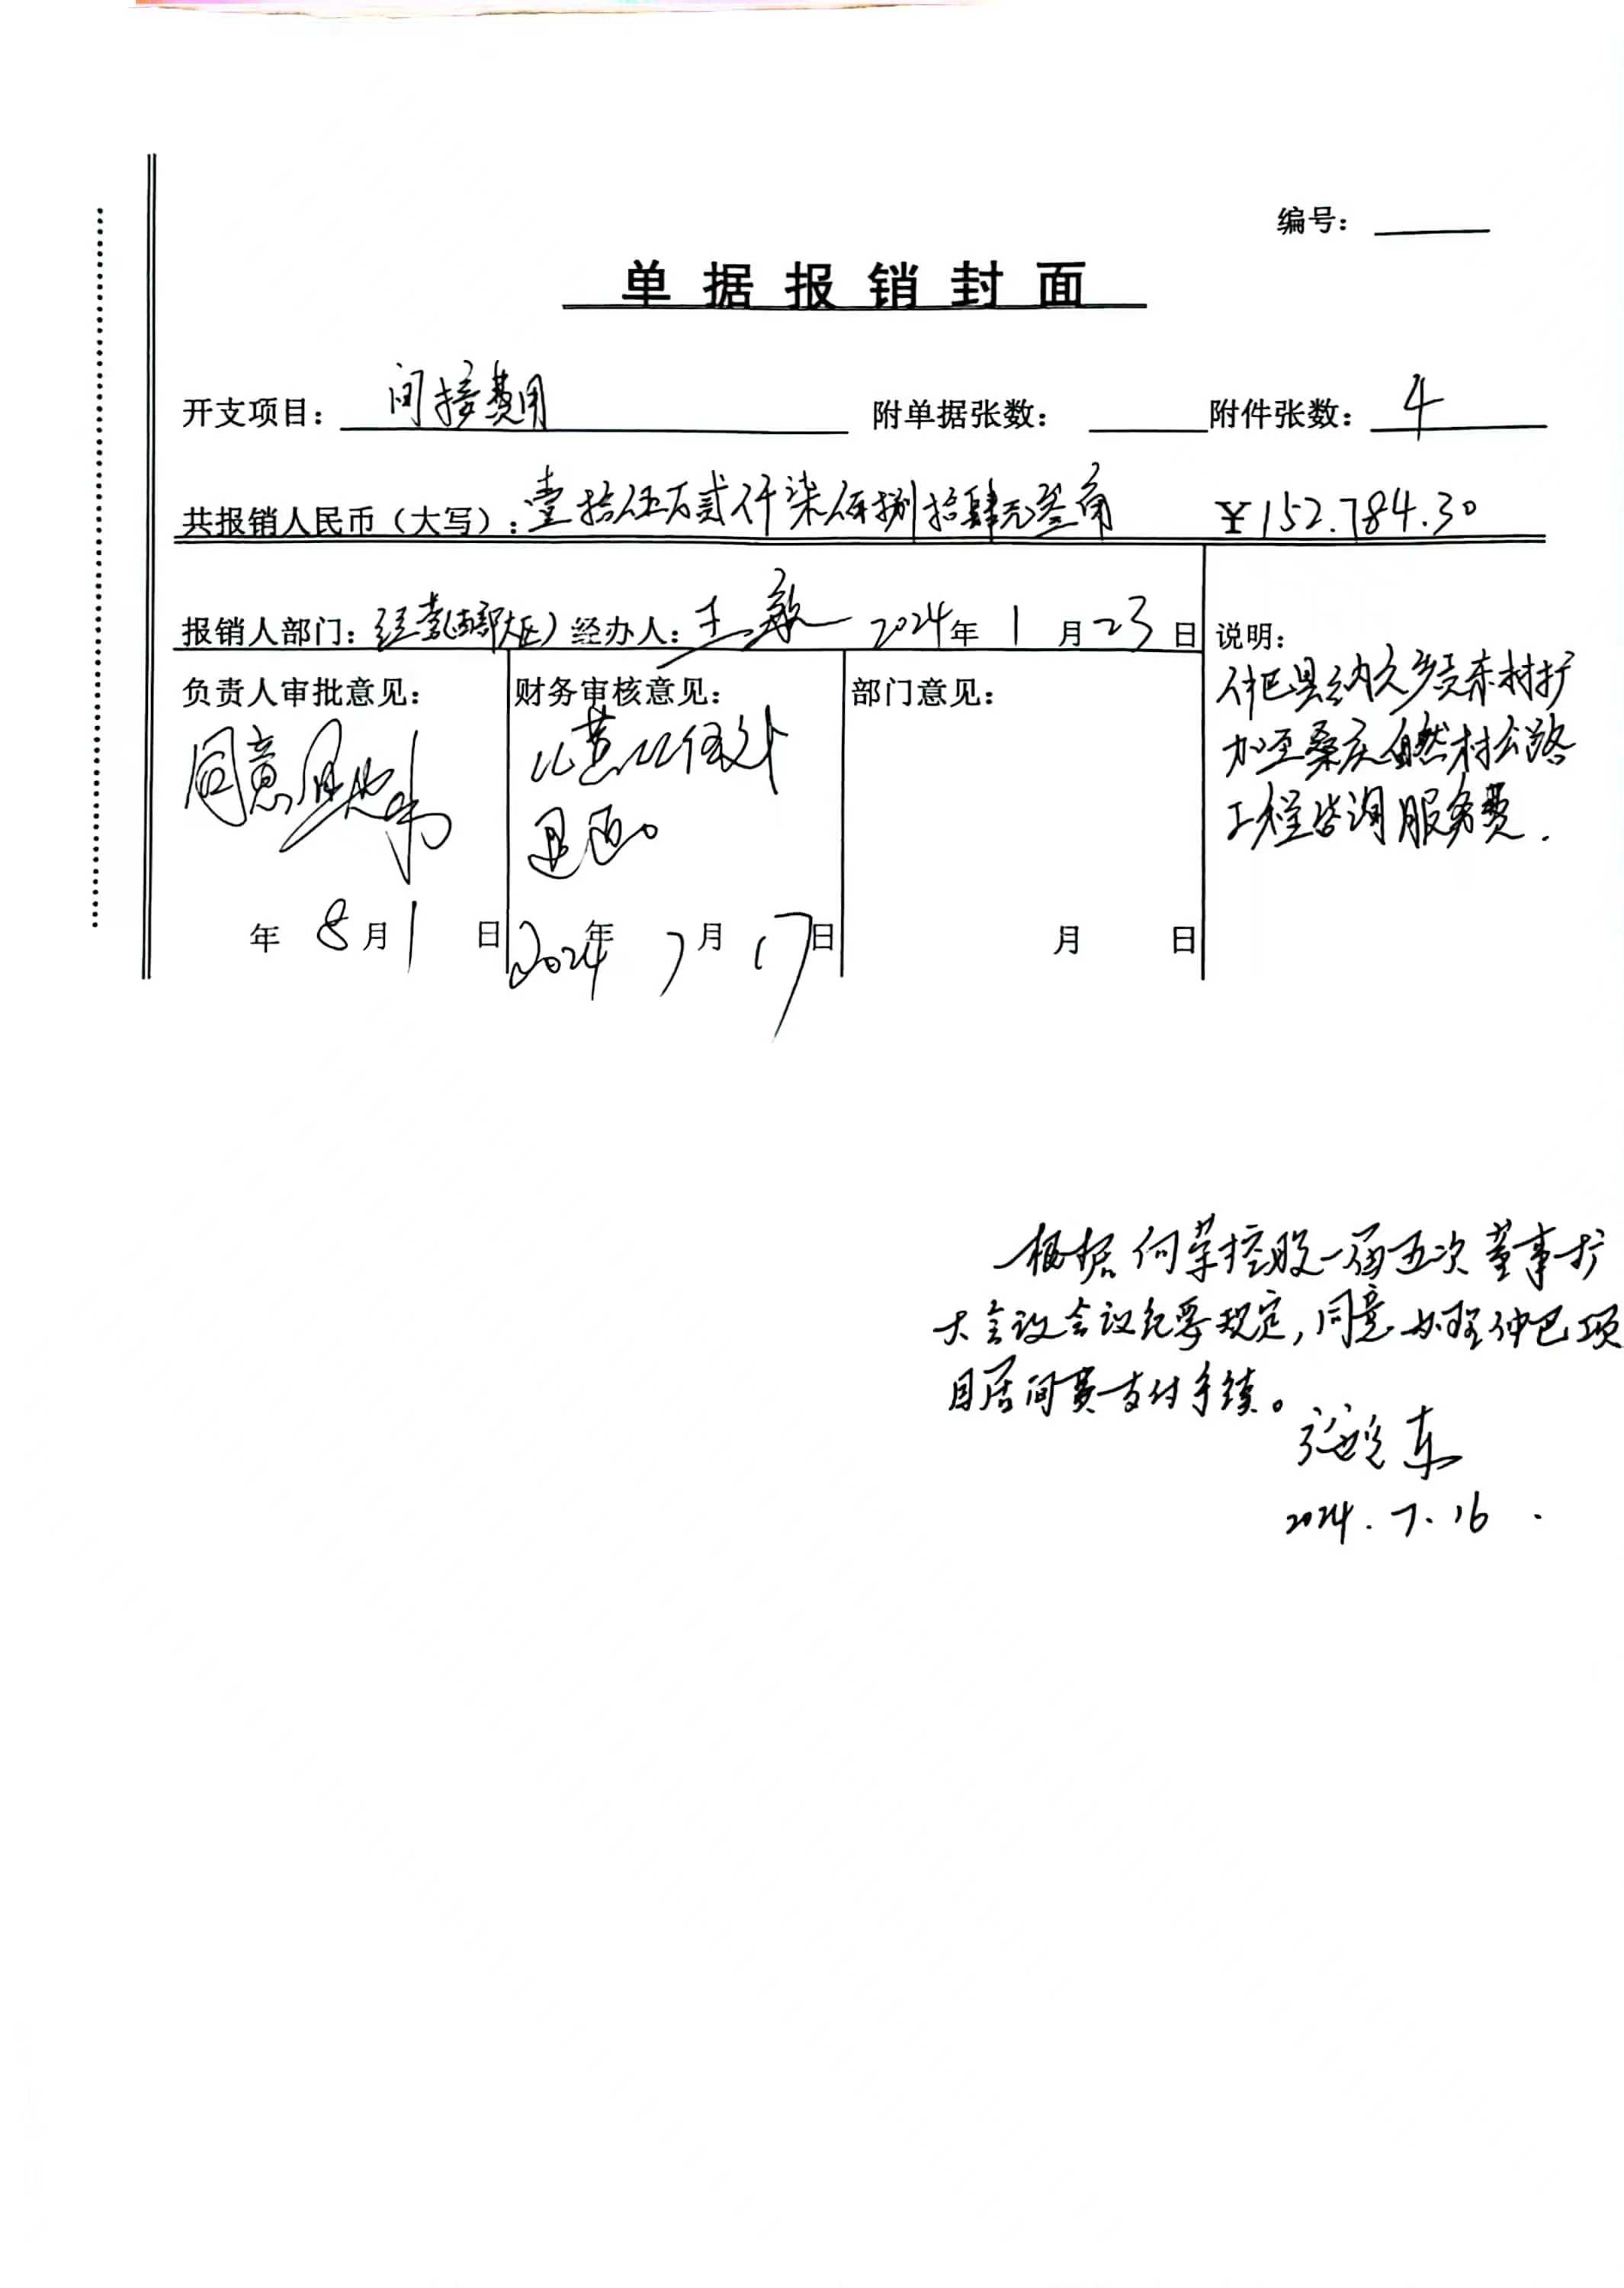 编号：
单据报销封面
开支项目： 间接费用 附单据张数： 附件张数： 4
共报销人民币（大写）：壹拾伍万贰仟柒佰捌拾肆元叁角 ￥152.784.30
报销人部门：经营(西部大区) 经办人：王敏 2024年 1月23日
说明：
仲巴县纳久乡贡东村扩
加至桑庆自然村公路
工程咨询服务费.
负责人审批意见：
同意
年 8月1日
财务审核意见：
2024年 7月17日
部门意见：
月 日
根据何荣控股一届五次董事扩
大会议会议纪要规定,同意办理仲巴项
目居间费支付手续。
东
2024.7.16.